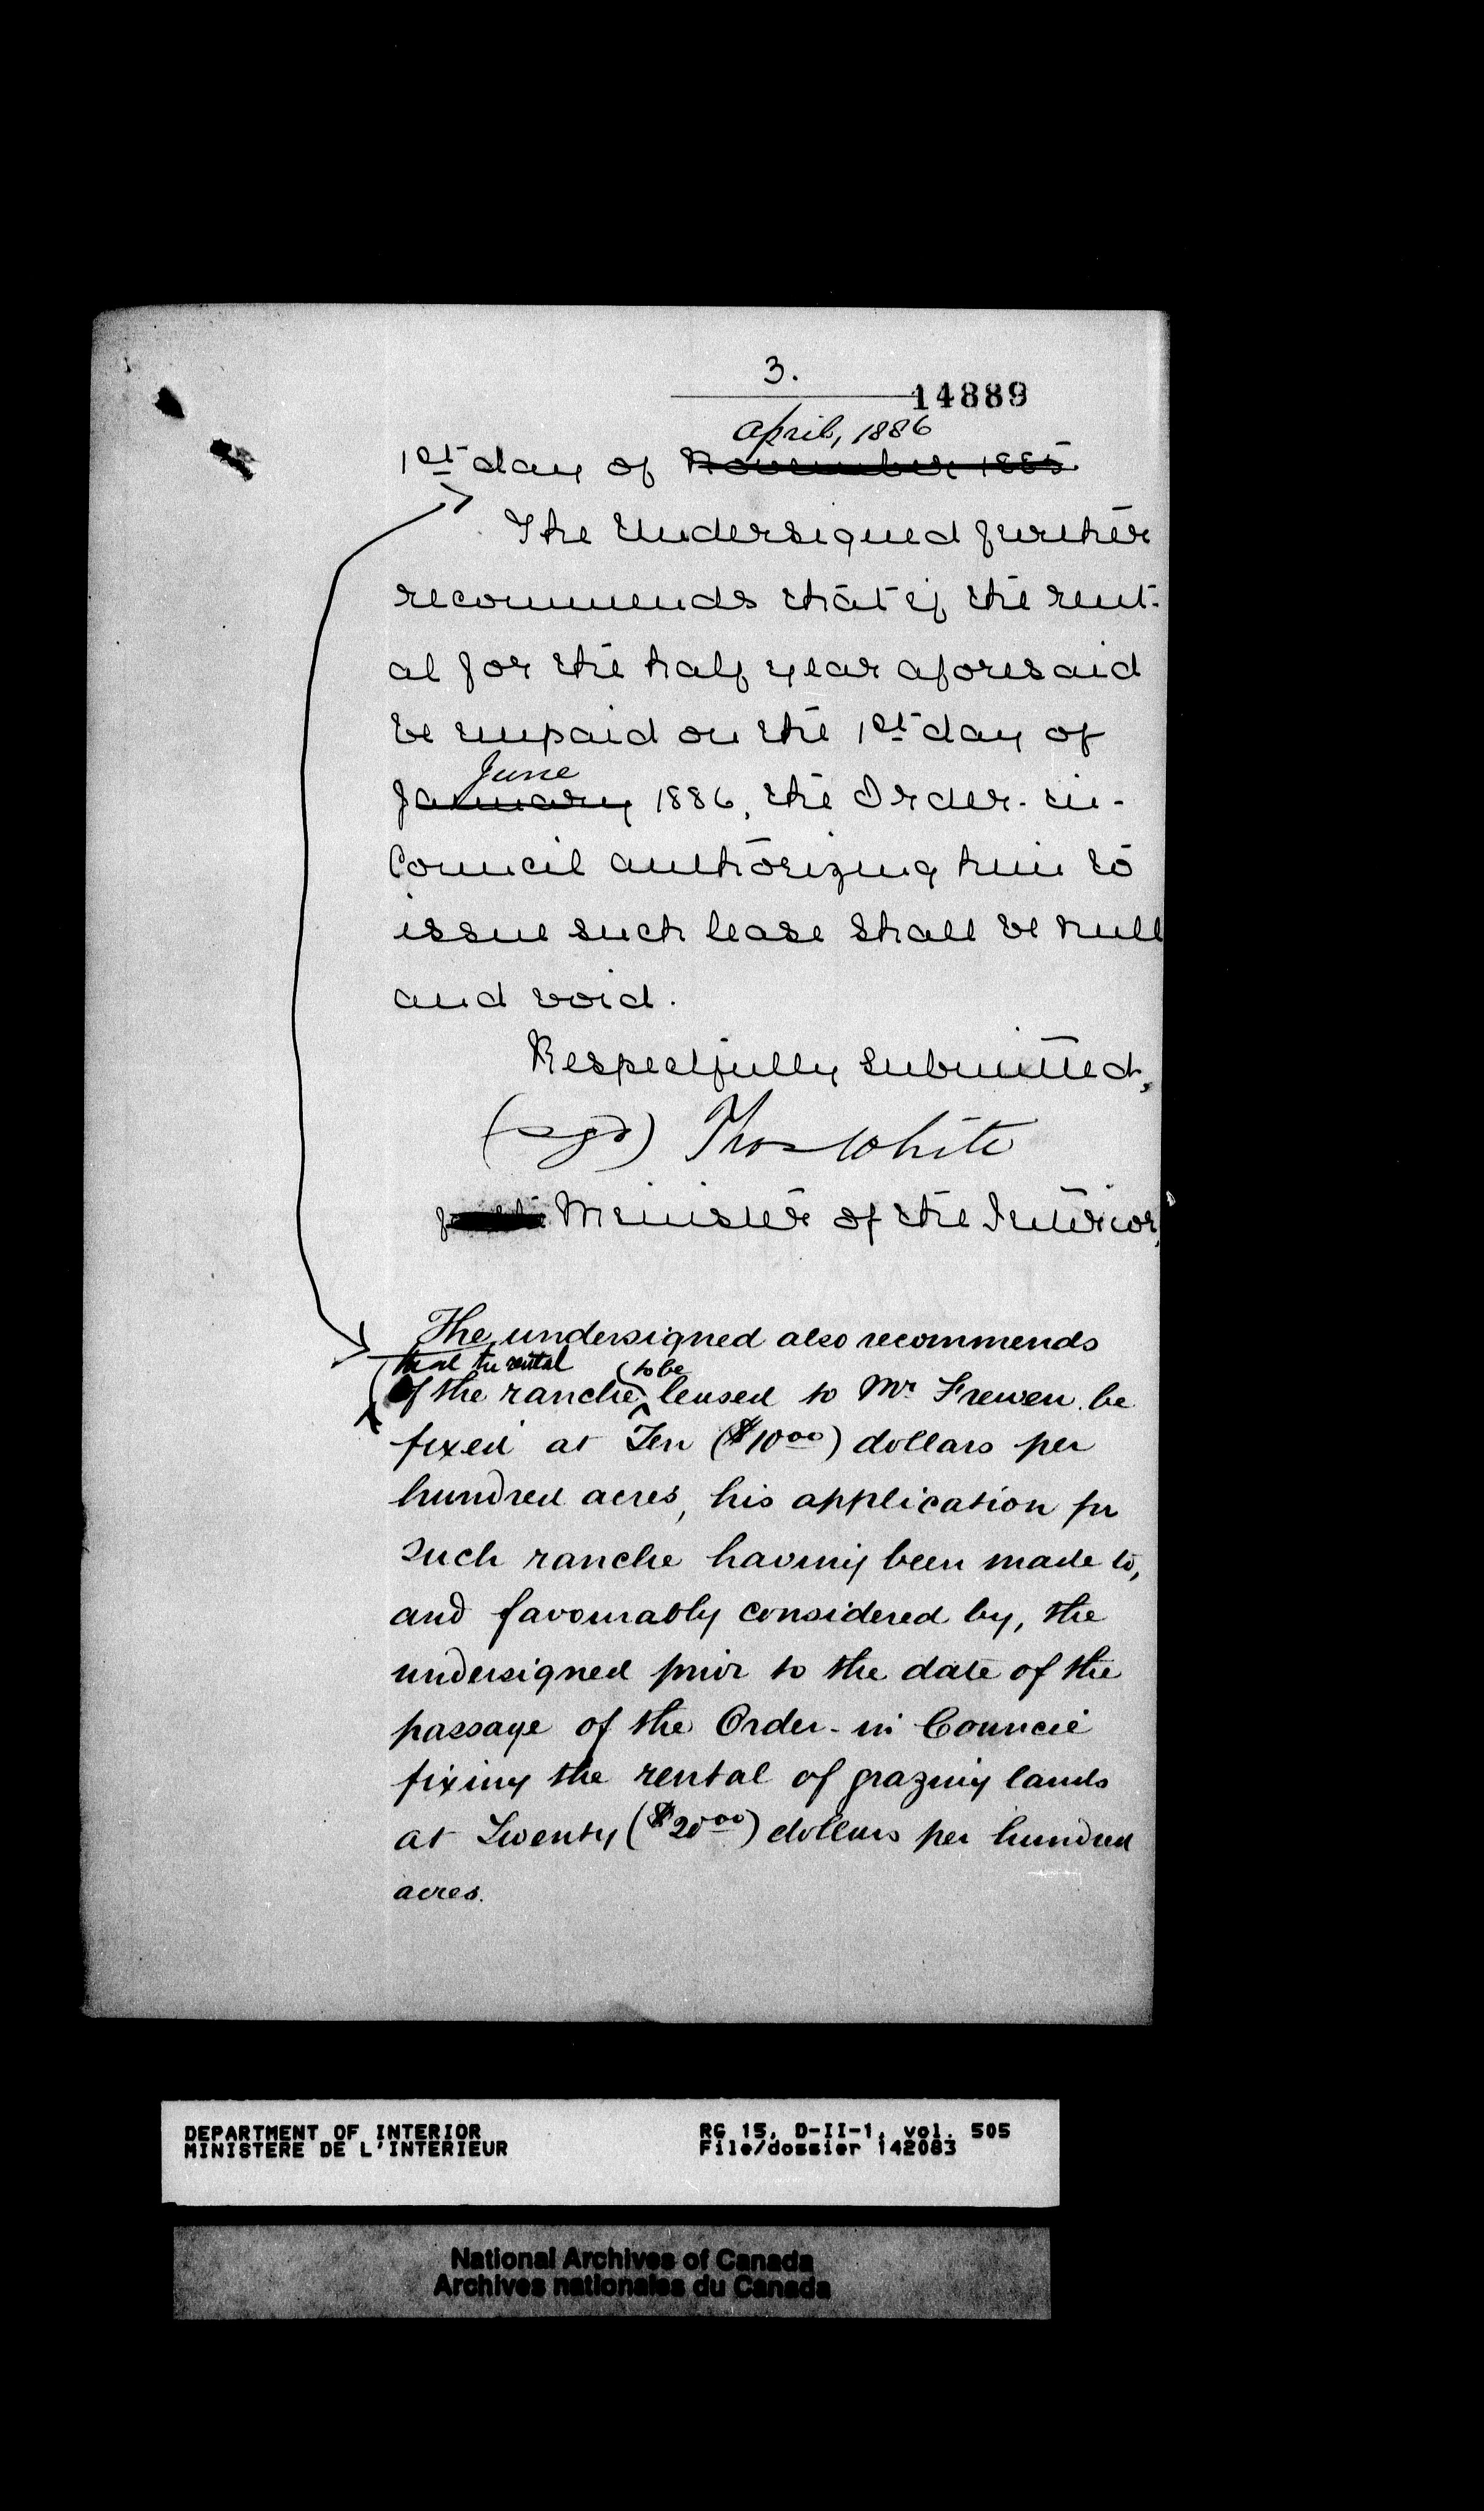 3.
14889
April, 1886
1st day of November 1885
The Undersigned further
recommends that if the rent-
al for the half year aforesaid
be unpaid on the 1st day of
June
January 1886, the Order-in-
Council authorizing him to
issue such lease shall be null
and void.
Respectfully submitted,
(sgd) Thos White
Minister of the Interior,
The undersigned also recommends
that the rental to be
of the ranche leased to Mr Frewen be
fixed at Ten ($10.00) dollars per
hundred acres, his application for
such ranche having been made to,
and favourably considered by, the
undersigned prior to the date of the
passage of the Order-in Council
fixing the rental of grazing lands
at Twenty ($20.00) dollars per hundred
acres.
DEPARTMENT OF INTERIOR RG 15, D-II-1, vol. 505
MINISTERE DE L'INTERIEUR File/dossier 142083
National Archives of Canada
Archives nationales du Canada